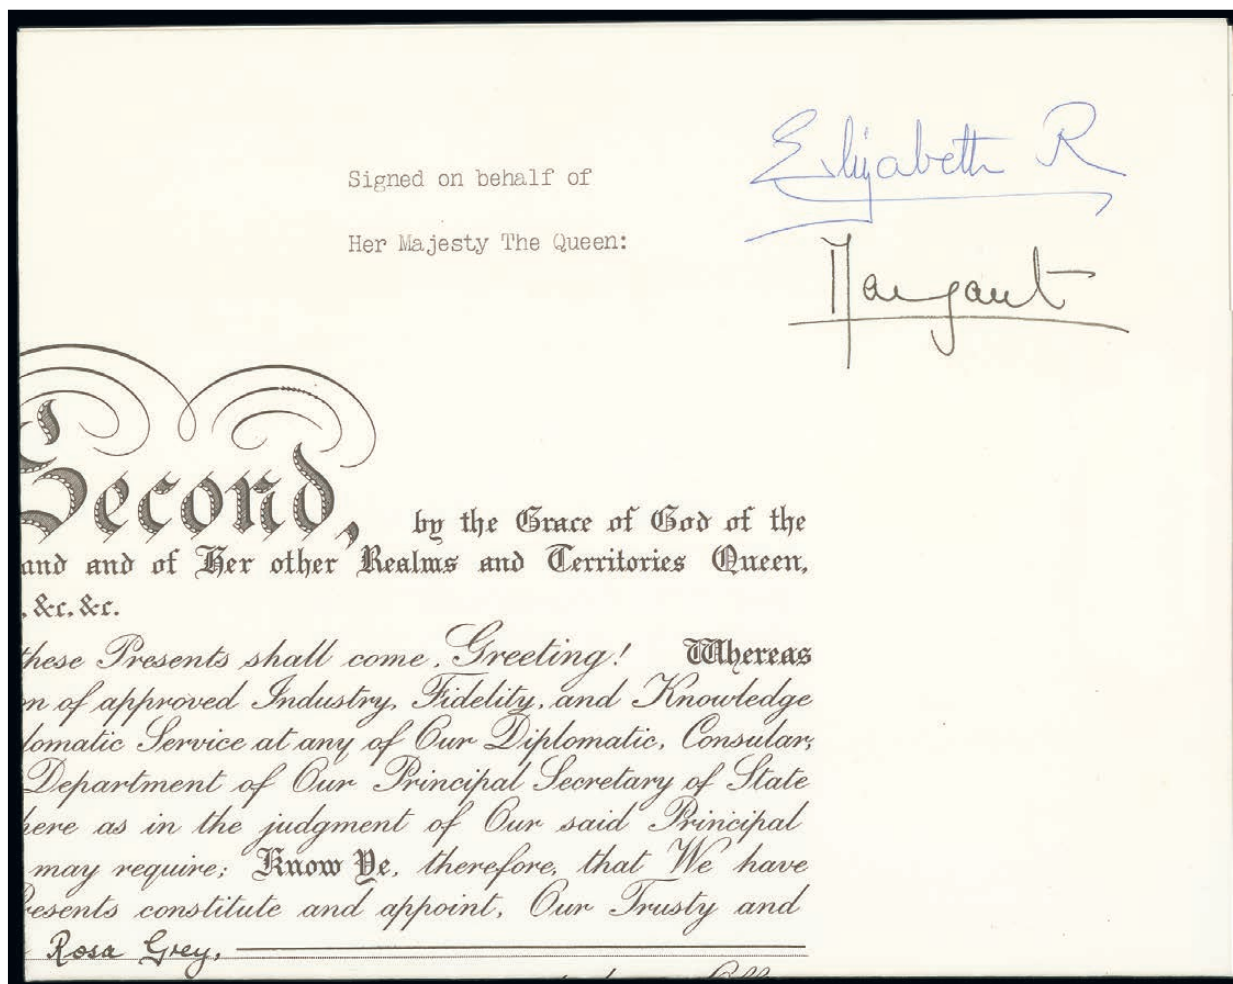 Elizabeth R
Signed on behalf of
Her Majesty The Queen:
Margaret
Second, by the Grace of God of the
and and of Her other Realms and Territories Queen,
, &c. &c.
these Presents shall come, Greeting! Whereas
n of approved Industry, Fidelity, and Knowledge
lomatic Service at any of Our Diplomatic, Consular,
Department of Our Principal Secretary of State
here as in the judgment of Our said Principal
may require; Know Ye, therefore, that We have
resents constitute and appoint, Our Trusty and
Rosa Grey,